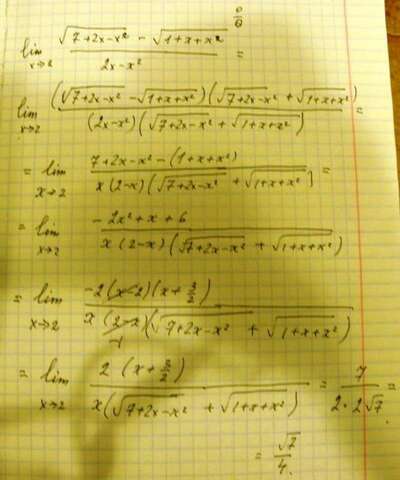 lim x→2 (√(7+2x-x²) - √(1+x+x²)) / (2x-x²) = 0/0
lim x→2 ((√(7+2x-x²) - √(1+x+x²))(√(7+2x-x²) + √(1+x+x²))) / ((2x-x²)(√(7+2x-x²) + √(1+x+x²))) =
= lim x→2 (7+2x-x²-(1+x+x²)) / (x(2-x)(√(7+2x-x²) + √(1+x+x²))) =
= lim x→2 (-2x²+x+6) / (x(2-x)(√(7+2x-x²) + √(1+x+x²)))
= lim x→2 (-2(x-2)(x+3/2)) / (x(2-x)(√(7+2x-x²) + √(1+x+x²))) -1
= lim x→2 (2(x+3/2)) / (x(√(7+2x-x²) + √(1+x+x²))) = 7/(2·2√7) =
= √7/4.